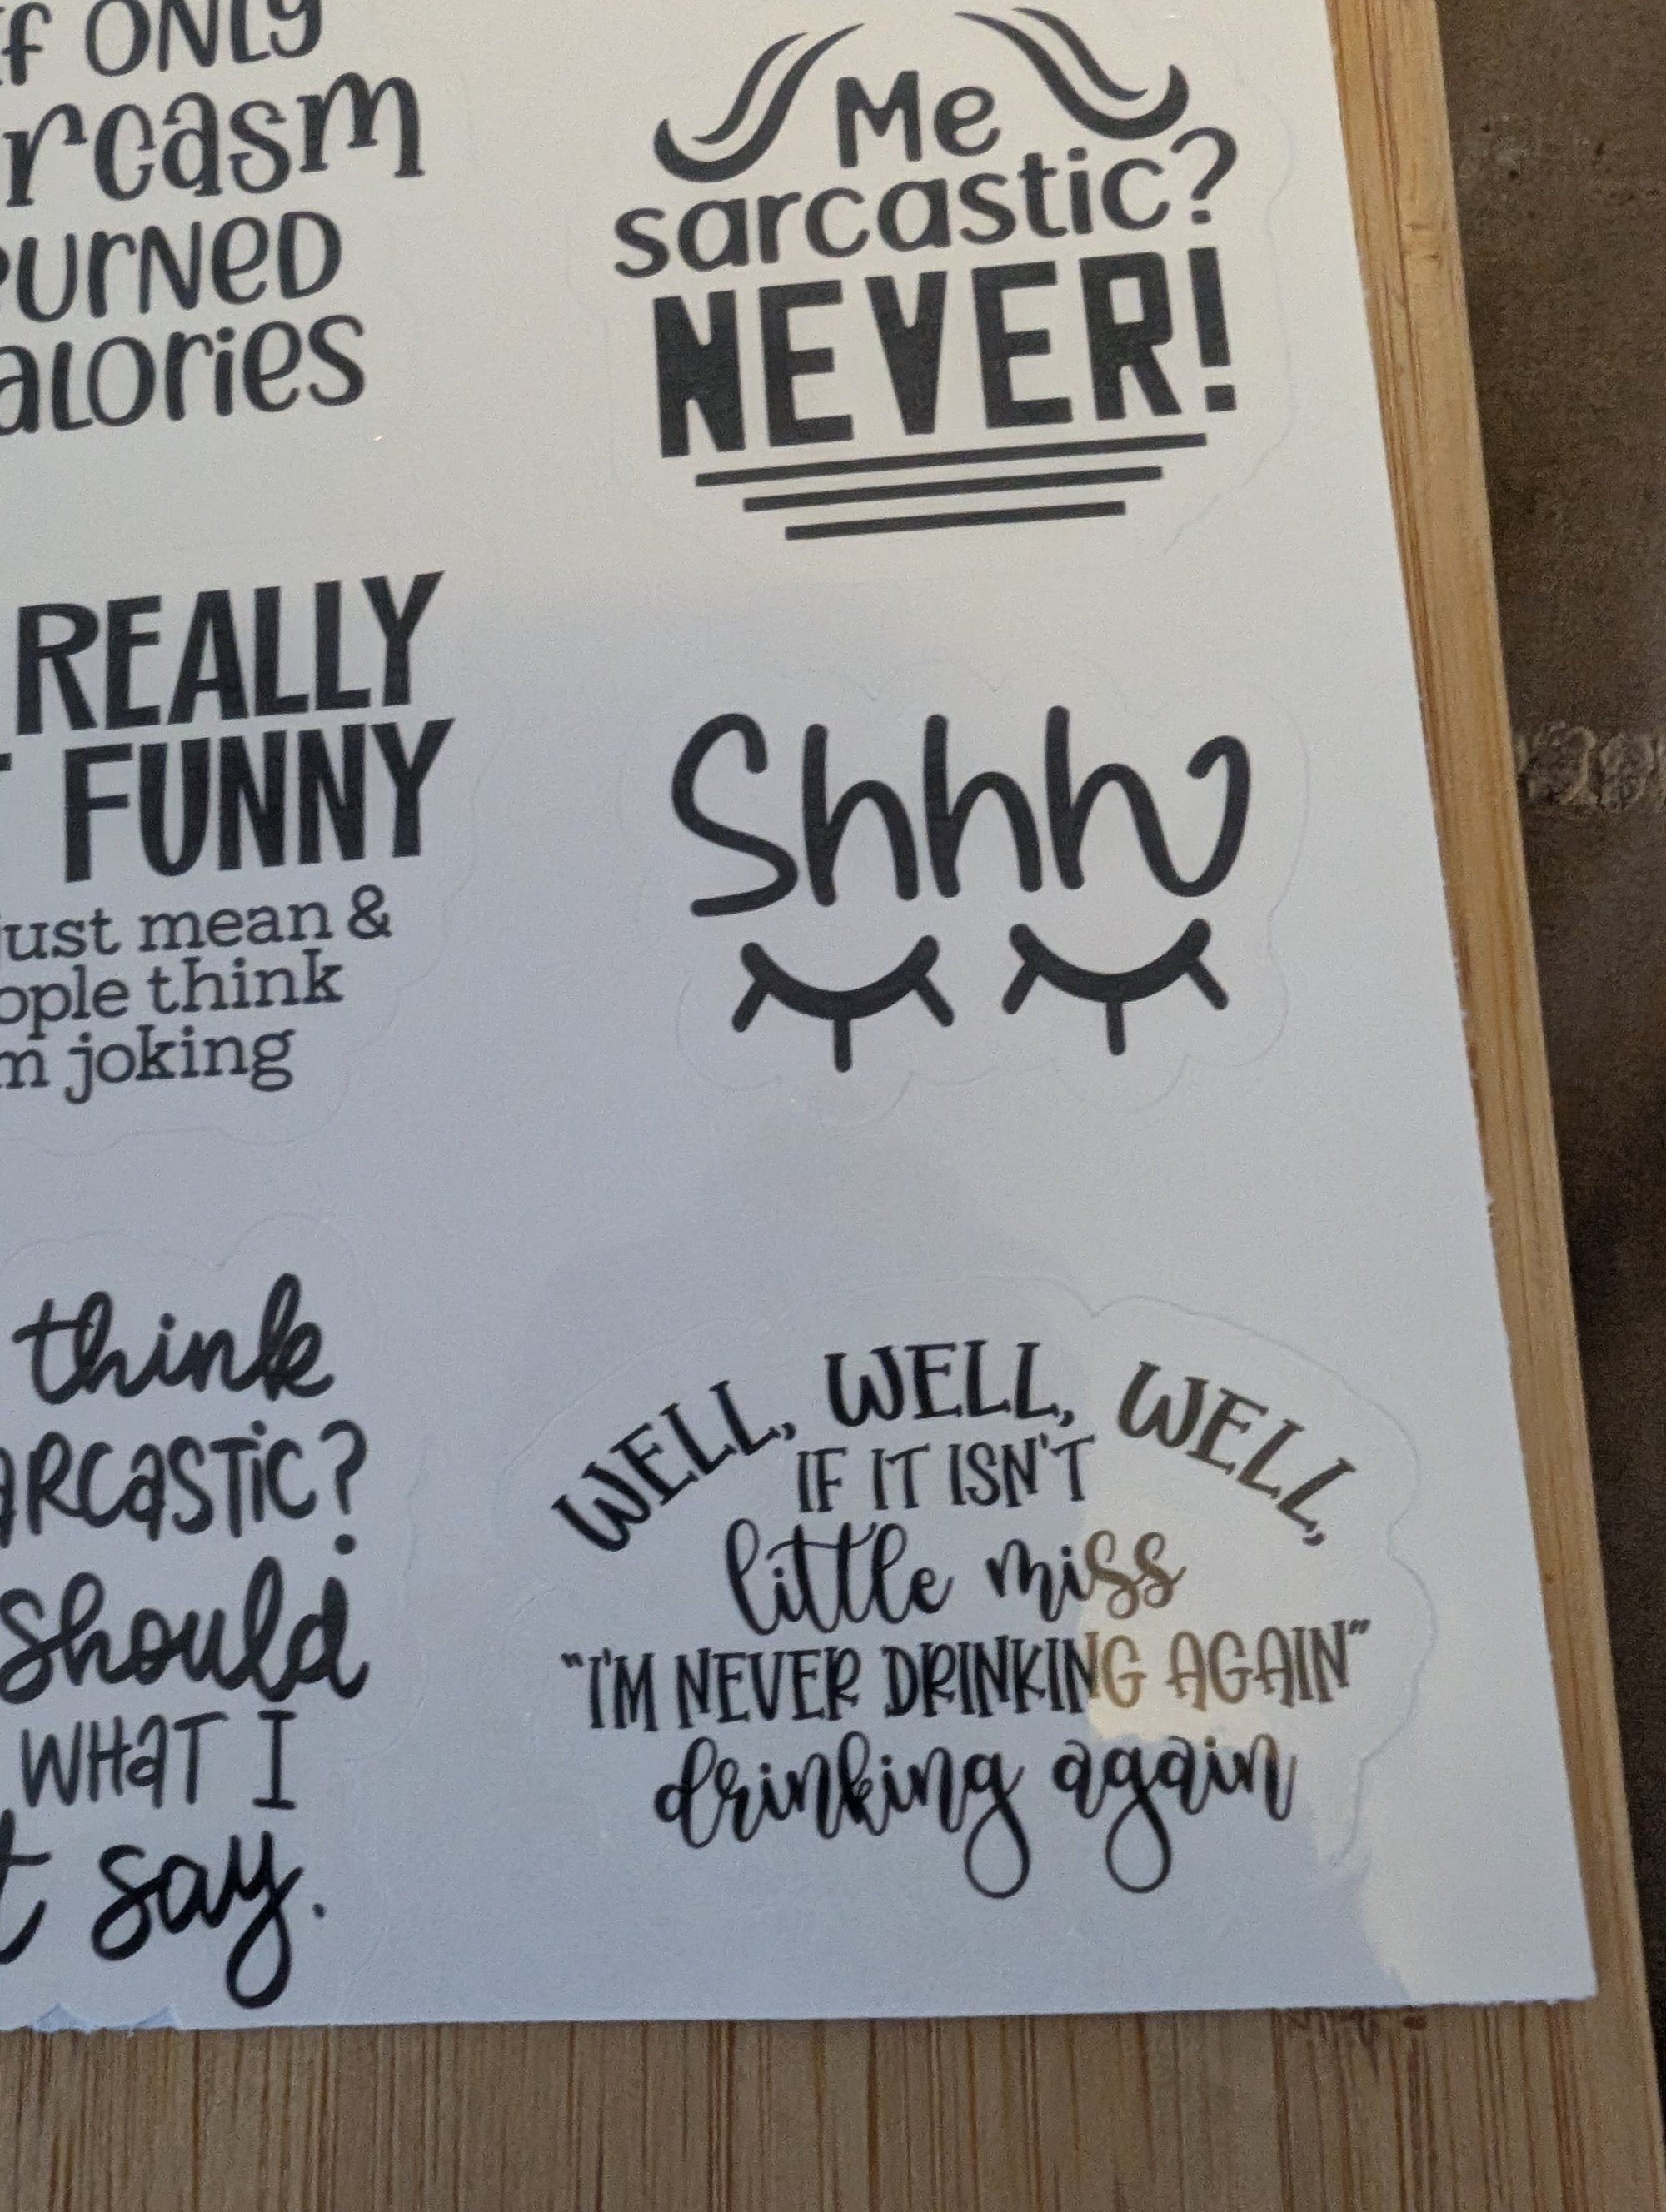 If ONLY
rcasm
urned
alories
Me
sarcastic?
NEVER!
REALLY
FUNNY
just mean &
ople think
m joking
Shhh
think
arcastic?
should
what I
t say.
WELL, WELL, WELL,
IF IT ISN'T
little miss
"I'M NEVER DRINKING AGAIN"
drinking again